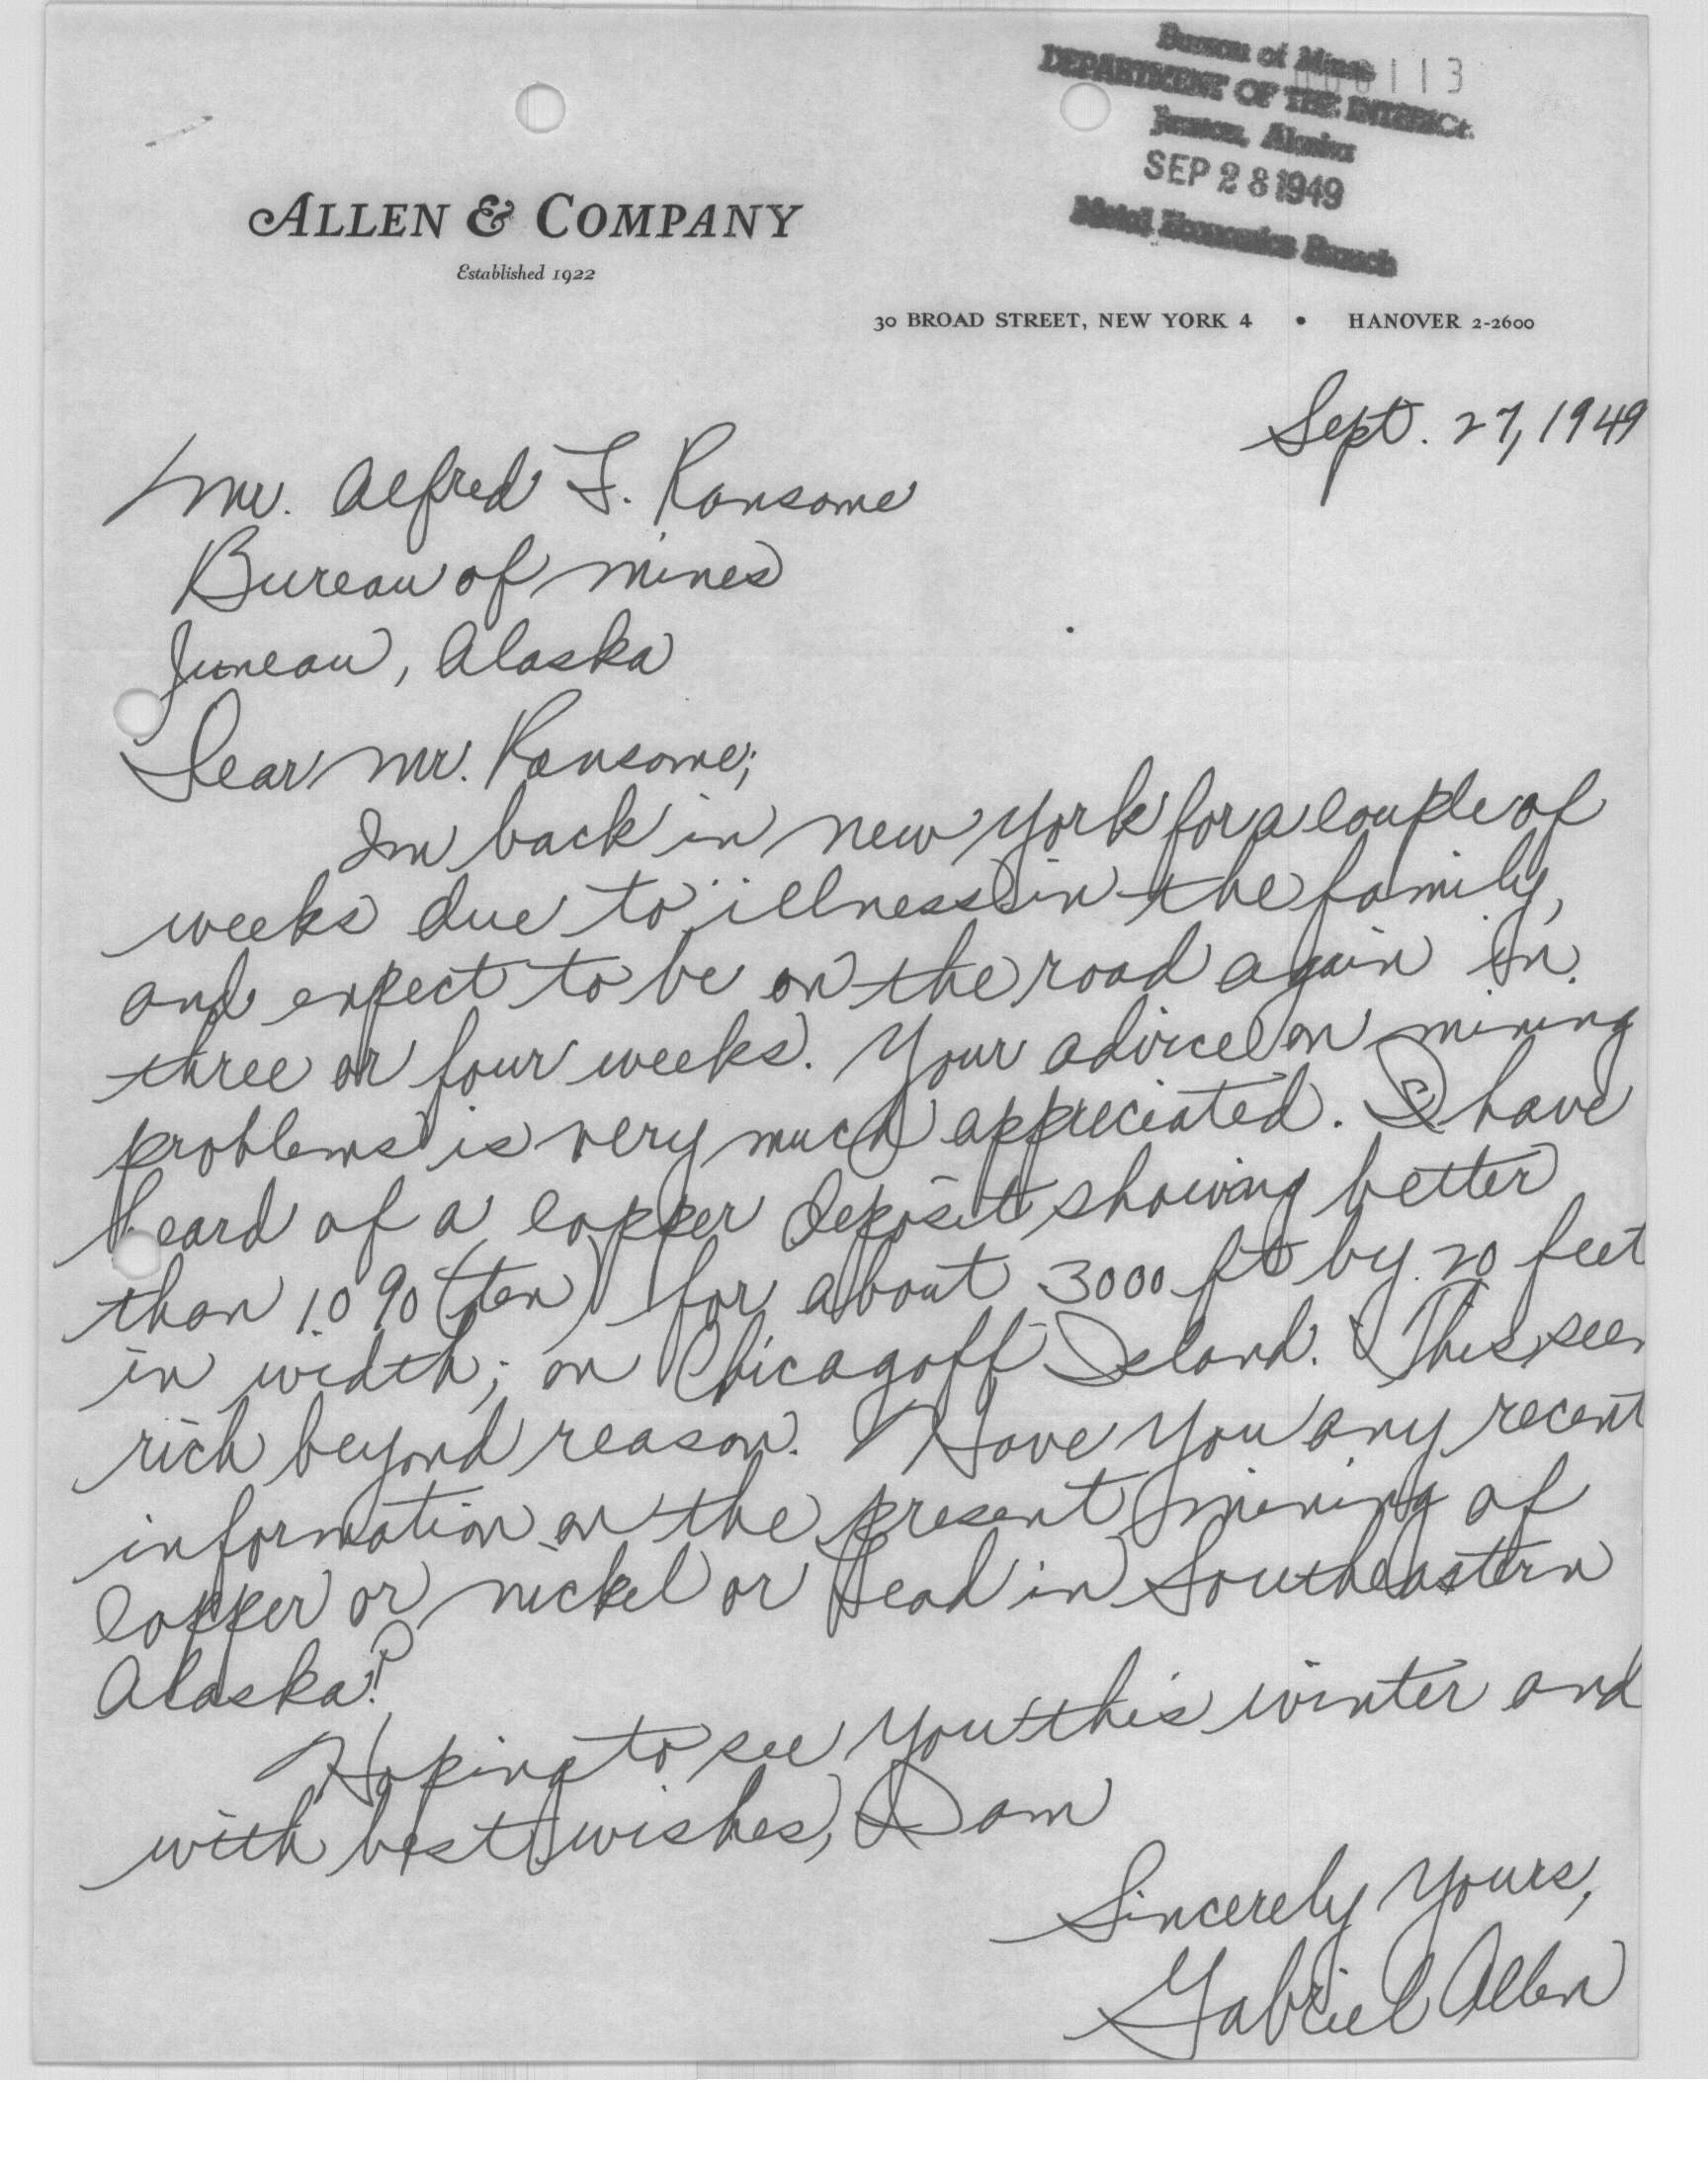 Bureau of Mines
113
DEPARTMENT OF THE INTERIOR
Juneau, Alaska
SEP 28 1949
Metal Economics Branch
ALLEN & COMPANY
Established 1922
30 BROAD STREET, NEW YORK 4 • HANOVER 2-2600
Sept. 27, 1949
Mr. Alfred L. Ransome
Bureau of Mines
Juneau, Alaska
Dear Mr. Ransome;
Im back in New York for a couple of
weeks due to illness in the family,
and expect to be on the road again in
three or four weeks. Your advice on mining
problems is very much appreciated. I have
heard of a copper deposit showing better
than 10% (ten) for about 3000 ft by 20 feet
in width; on Chicagoff Island. This seem
rich beyond reason. Have you any recent
information on the present mining of
copper or nickel or lead in Southeastern
Alaska?
Hoping to see you this winter and
with best wishes, I am
Sincerely Yours,
Gabriel Allen